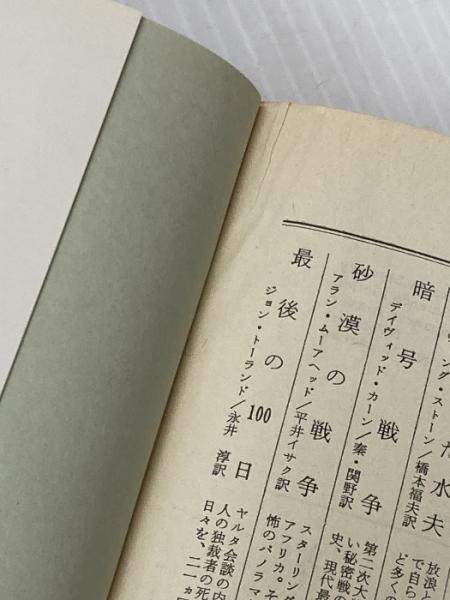 水夫
ング・ストーン/橋本福夫訳
放浪と
で自ら
ど多くの
暗号戦争
デイヴィッド・カーン/秦・関野訳
第二次大
い秘密戦の
史、現代最
砂漠の戦争
アラン・ムーアヘッド/平井イサク訳
スターリング
アフリカ。そ
怖のパノラマ
最後の100日
ジョン・トーランド/永井淳訳
ヤルタ会談の内
人の独裁者の死
日々を、二一ヵ